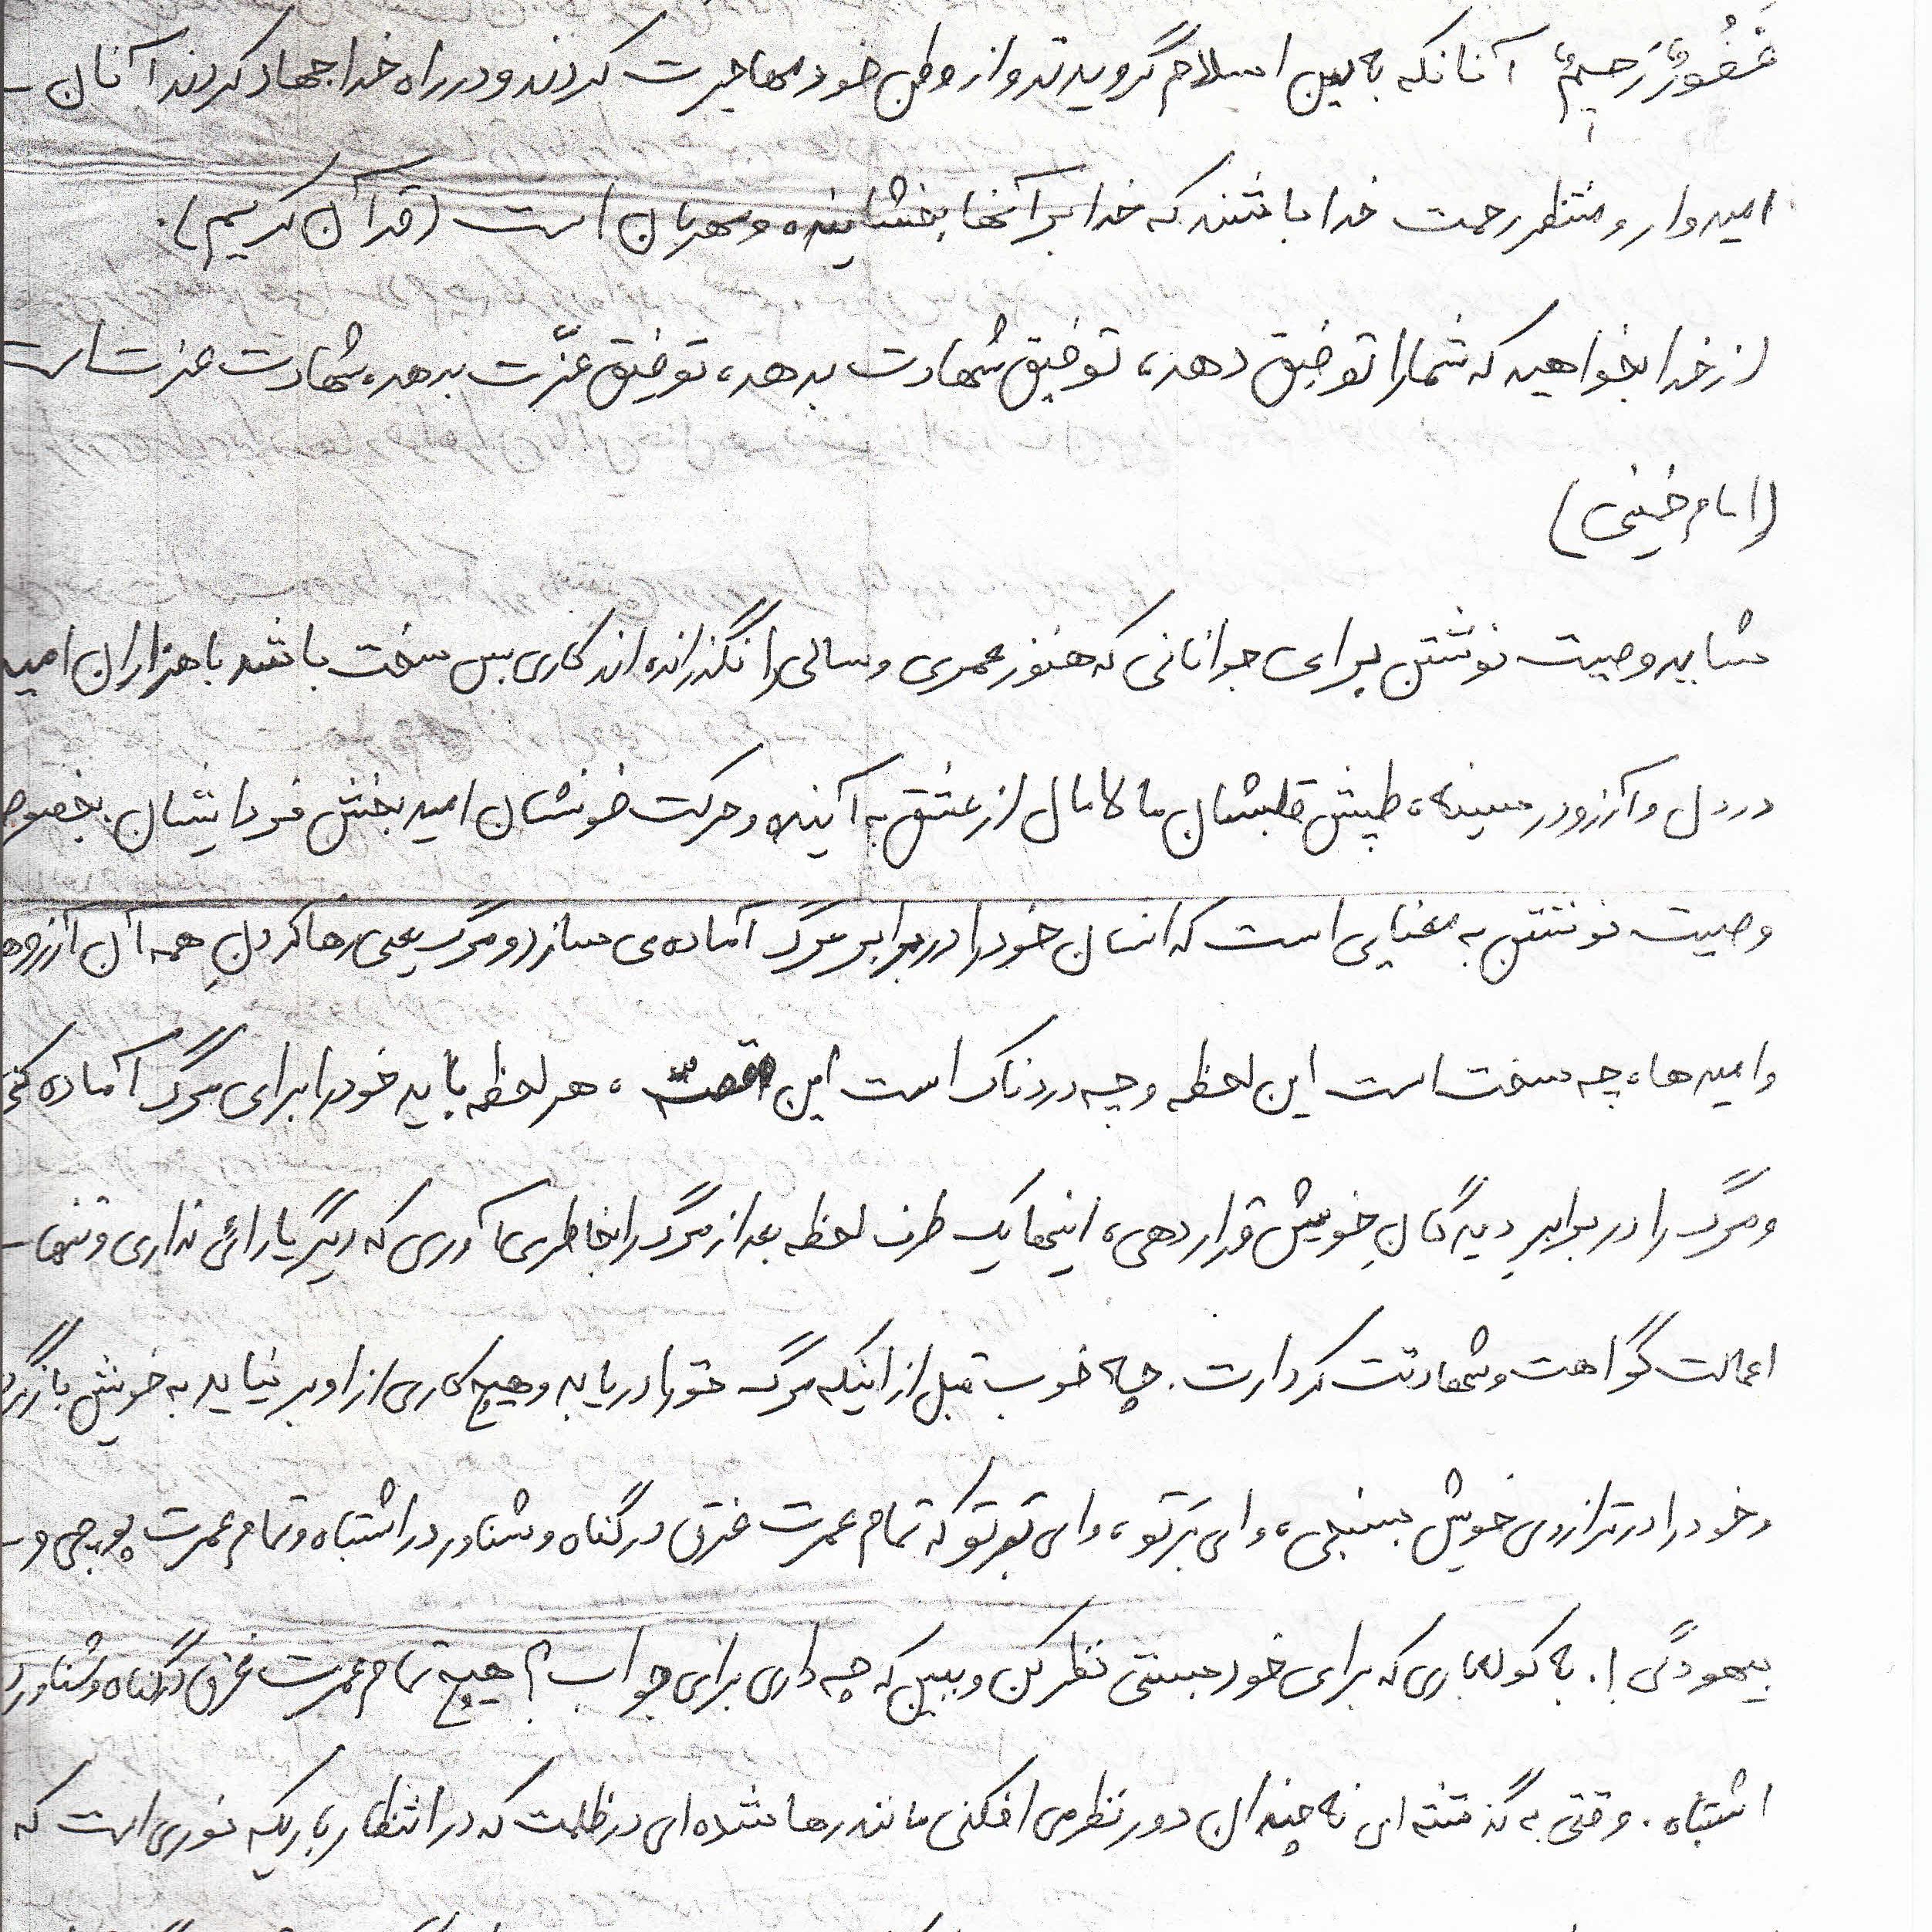 غَفُورٌ رَحیمٌ آنانکه به دین اسلام گرویدند و از وطن خود مهاجرت کردند و در راه خدا جهاد کردند آنان
امیدوار و منتظر رحمت خدا باشند که خدا بر آنها بخشاینده و مهربان است (قرآن کریم).
از خدا بخواهید که شما را توفیق دهد، توفیق شهادت بدهد، توفیق عزّت بدهد، شهادت عزت است
(امام خمینی)
شاید وصیت نوشتن برای جوانانی که هنوز عمری و سالی را نگذرانده اند کاری بس سخت باشد با هزاران امید
در دل و آرزو در سینه، طپش قلبشان مالامال از عشق به آینده و حرکت خونشان امید بخش فردایشان بخصوص
وصیت نوشتن به معنایی است که انسان خود را در برابر مرگ آماده می سازد و مرگ یعنی رها کردنِ همه آن آرزوها
و امیدها، چه سخت است این لحظه و چه دردناک است این ، هر لحظه باید خود را برای مرگ آماده کنی
و مرگ را در برابرِ دیدگانِ خویش قرار دهی، اینها یک طرف لحظه بعد از مرگ را بخاطر می آوری که دیگر یارائی نداری و تنها
اعمالت گواهت و شهادتت کردارت. چه خوب قبل از اینکه مرگ تو را دریابد و هیچ کاری از او بر نیاید به خویش باز گردی
و خود را در ترازوی خویش بسنجی، وای بَر تو، وای بَر تو که تمام عمرت غرق در گناه و شناور در اشتباه و تمام عمرت پوچی و
بیهودگی!. به کوله باری که برای خود بستی نظر کن و ببین که چه داری برای جواب؟ هیچ تمام عمرت غرق در گناه و شناور در
اشتباه. وقتی به گذشته ای نه چندان دور نظر می افکنی مانند رها شده ای در ظلمت که در انتظار باریکه نوری است که